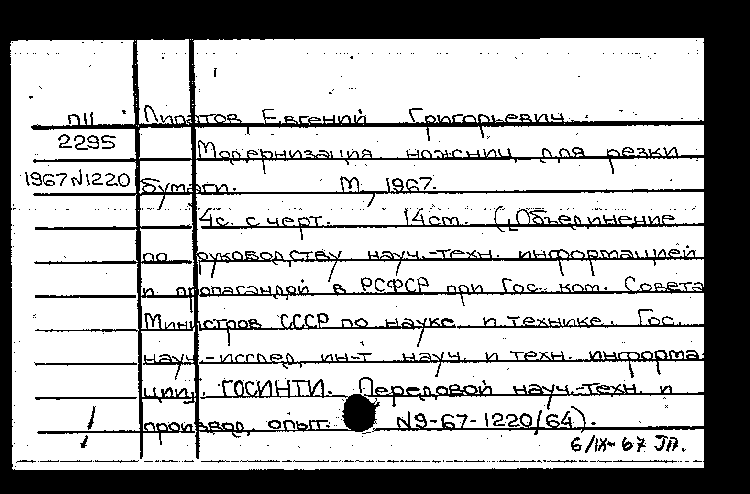 П11 Липатов, Евгений Григорьевич.
2295 Модернизация ножниц для резки
1967 N1220 бумаги. М., 1967.
4с. с черт. 14см. ([Объединение
по руководству науч.-техн. информацией
и пропагандой в РСФСР при Гос. ком. Совета
Министров СССР по науке и технике. Гос.
науч.-исслед. ин-т науч. и техн. информа-
ции]. ГОСИНТИ. Передовой науч.-техн. и
производ. опыт. N9-67-1220/64).
6/IX-67